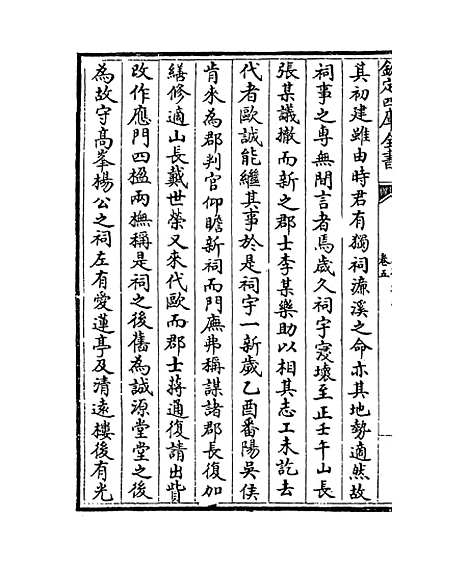 欽定四庫全書
卷五
其初建雖由時君有獨祠濂溪之命亦其地勢適然故
祠事之專無間言者焉歲久祠宇寖壞至正壬午山長
張某議撤而新之郡士李某樂助以相其志工未訖去
代者歐誠能繼其事於是祠宇一新歲乙酉番陽吳侯
肯來為郡判官仰瞻新祠而門廡弗稱謀諸郡長復加
繕修適山長戴世榮又來代歐而郡士蔣通復請出貲
改作應門四楹兩橆稱是祠之後舊為誠源堂堂之後
為故守髙峯楊公之祠左有愛蓮亭及清遠樓後有光